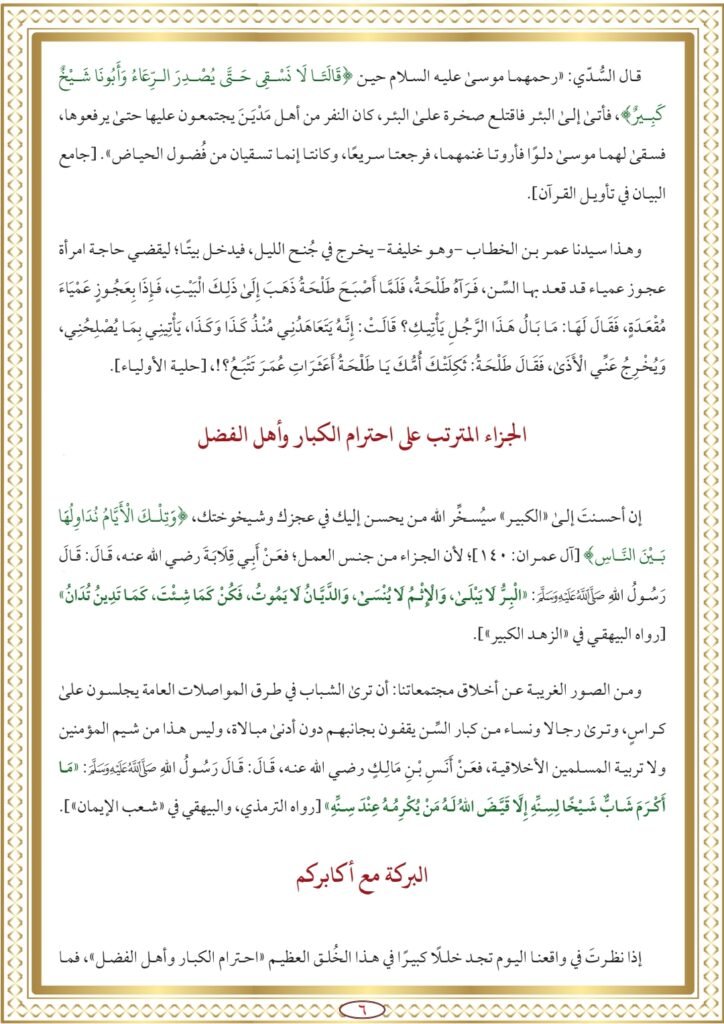 قال السُّدّي: «رحمهما موسىٰ عليه السلام حين ﴿قَالَتَا لَا نَسْقِي حَتَّى يُصْدِرَ الرِّعَاءُ وَأَبُونَا شَيْخٌ
كَبِيرٌ﴾، فأتىٰ إلىٰ البئر فاقتلع صخرة علىٰ البئر، كان النفر من أهل مَدْيَنَ يجتمعون عليها حتىٰ يرفعوها،
فسقىٰ لهما موسىٰ دلوًا فأروتا غنمهما، فرجعتا سريعًا، وكانتا إنما تسقيان من فُضول الحياض». [جامع
البيان في تأويل القرآن].
وهذا سيدنا عمر بن الخطاب -وهو خليفة- يخرج في جُنح الليل، فيدخل بيتًا؛ ليقضي حاجة امرأة
عجوز عمياء قد قعد بها السِّن، فَرَآهُ طَلْحَةُ، فَلَمَّا أَصْبَحَ طَلْحَةُ ذَهَبَ إِلَىٰ ذَلِكَ الْبَيْتِ، فَإِذَا بِعَجُوزٍ عَمْيَاءَ
مُقْعَدَةٍ، فَقَالَ لَهَا: مَا بَالُ هَذَا الرَّجُلِ يَأْتِيكِ؟ قَالَتْ: إِنَّهُ يَتَعَاهَدُنِي مُنْذُ كَذَا وَكَذَا، يَأْتِينِي بِمَا يُصْلِحُنِي،
وَيُخْرِجُ عَنِّي الْأَذَىٰ، فَقَالَ طَلْحَةُ: ثَكِلَتْكَ أُمُّكَ يَا طَلْحَةُ أَعَثَرَاتِ عُمَرَ تَتْبَعُ؟!، [حلية الأولياء].
الجزاء المترتب على احترام الكبار وأهل الفضل
إن أحسنتَ إلىٰ «الكبير» سيُسخِّر الله من يحسن إليك في عجزك وشيخوختك، ﴿وَتِلْكَ الْأَيَّامُ نُدَاوِلُهَا
بَيْنَ النَّاسِ﴾ [آل عمران: ١٤٠]؛ لأن الجزاء من جنس العمل؛ فعَنْ أَبِي قِلَابَةَ رضي الله عنه، قَالَ: قَالَ
رَسُولُ اللهِ ﷺ: «الْبِرُّ لَا يَبْلَىٰ، وَالْإِثْمُ لَا يُنْسَىٰ، وَالدَّيَّانُ لَا يَمُوتُ، فَكُنْ كَمَا شِئْتَ، كَمَا تَدِينُ تُدَانُ»
[رواه البيهقي في «الزهد الكبير»].
ومن الصور الغريبة عن أخلاق مجتمعاتنا: أن ترىٰ الشباب في طرق المواصلات العامة يجلسون علىٰ
كراسٍ، وترىٰ رجالا ونساء من كبار السِّن يقفون بجانبهم دون أدنىٰ مبالاة، وليس هذا من شيم المؤمنين
ولا تربية المسلمين الأخلاقية، فعَنْ أَنَسِ بْنِ مَالِكٍ رضي الله عنه، قَالَ: قَالَ رَسُولُ اللهِ ﷺ: «مَا
أَكْرَمَ شَابٌّ شَيْخًا لِسِنِّهِ إِلَّا قَيَّضَ اللهُ لَهُ مَنْ يُكْرِمُهُ عِنْدَ سِنِّهِ» [رواه الترمذي، والبيهقي في «شعب الإيمان»].
البركة مع أكابركم
إذا نظرتَ في واقعنا اليوم تجد خللًا كبيرًا في هذا الخُلق العظيم «احترام الكبار وأهل الفضل»، فما
٦